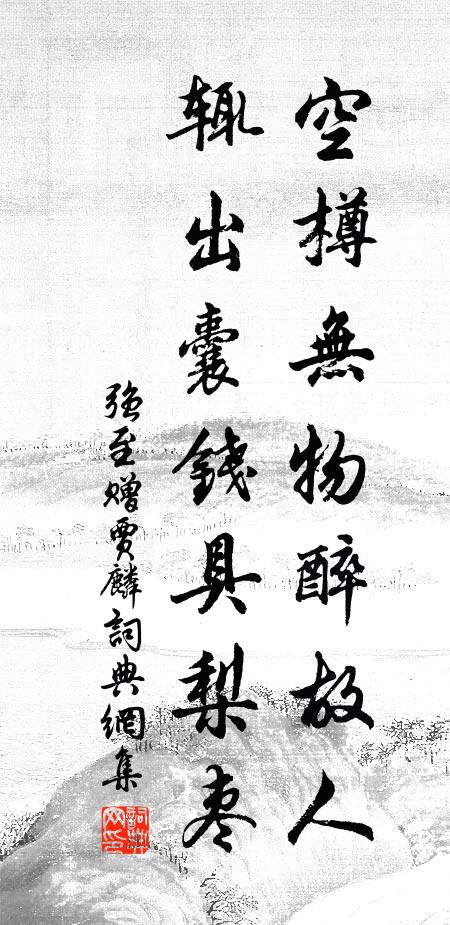 空樽無物醉故人
輒出囊錢具梨枣
强至贈賈麟詞典網集